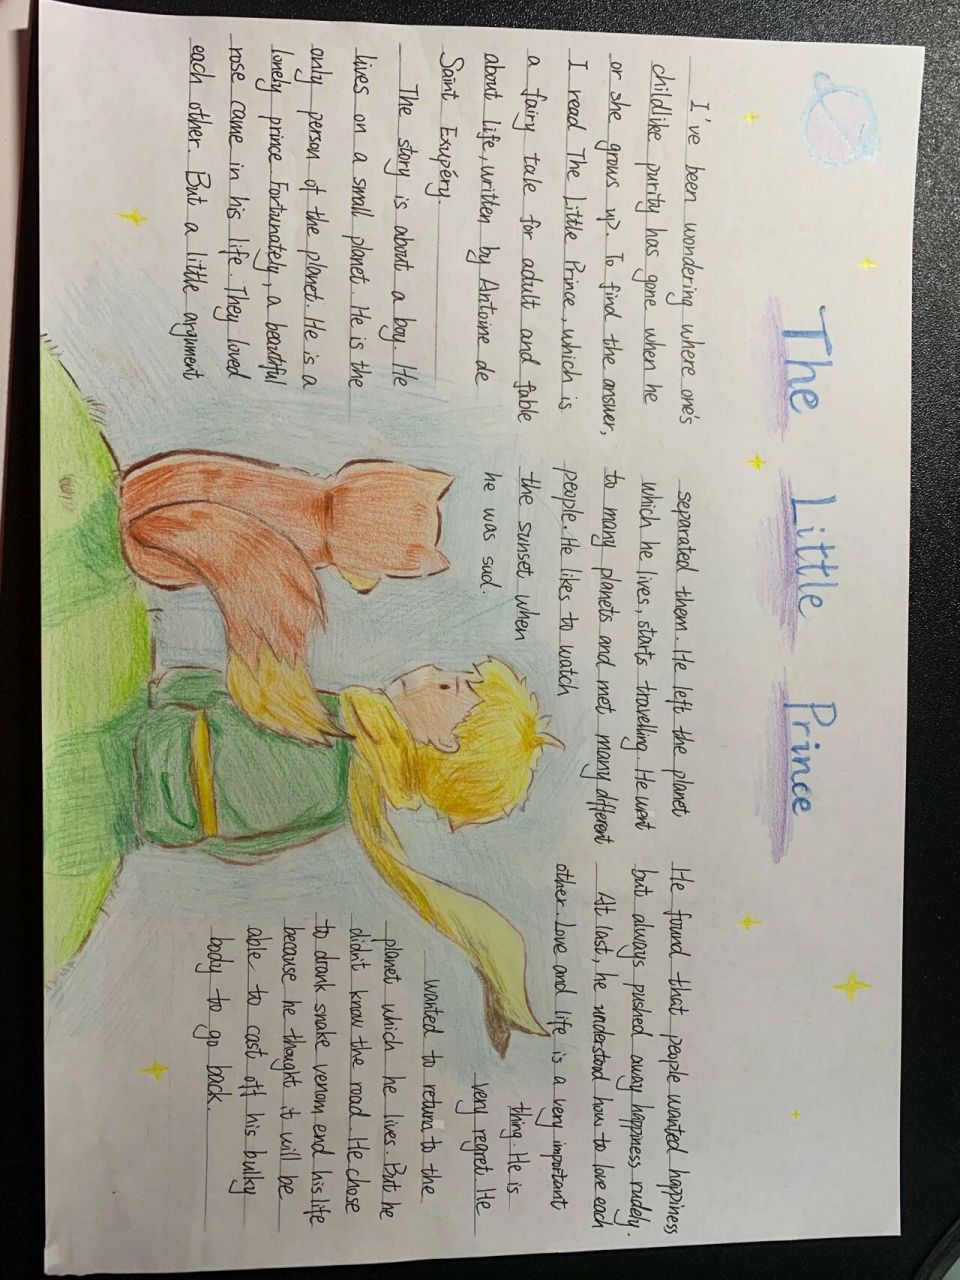 The Little Prince
I've been wondering where one's
childlike purity has gone when he
or she grows up. To find the answer,
I read The Little Prince, which is
a fairy tale for adult and fable
about life, written by Antoine de
Saint Exupéry.
The story is about a boy. He
lives on a small planet. He is the
only person of the planet. He is a
lonely prince. Fortunately, a beautiful
rose came in his life. They loved
each other. But a little argument
separated them. He left the planet
which he lives, starts travelling. He went
to many planets and met many different
people. He likes to watch
the sunset when
he was sad.
He found that people wanted happiness
but always pushed away happiness rudely.
At last, he understood how to love each
other. Love and life is a very important
thing. He is
very regret. He
wanted to return to the
planet which he lives. But he
didn't know the road. He chose
to drank snake venom end his life
because he thought it will be
able to cast off his bulky
body to go back.